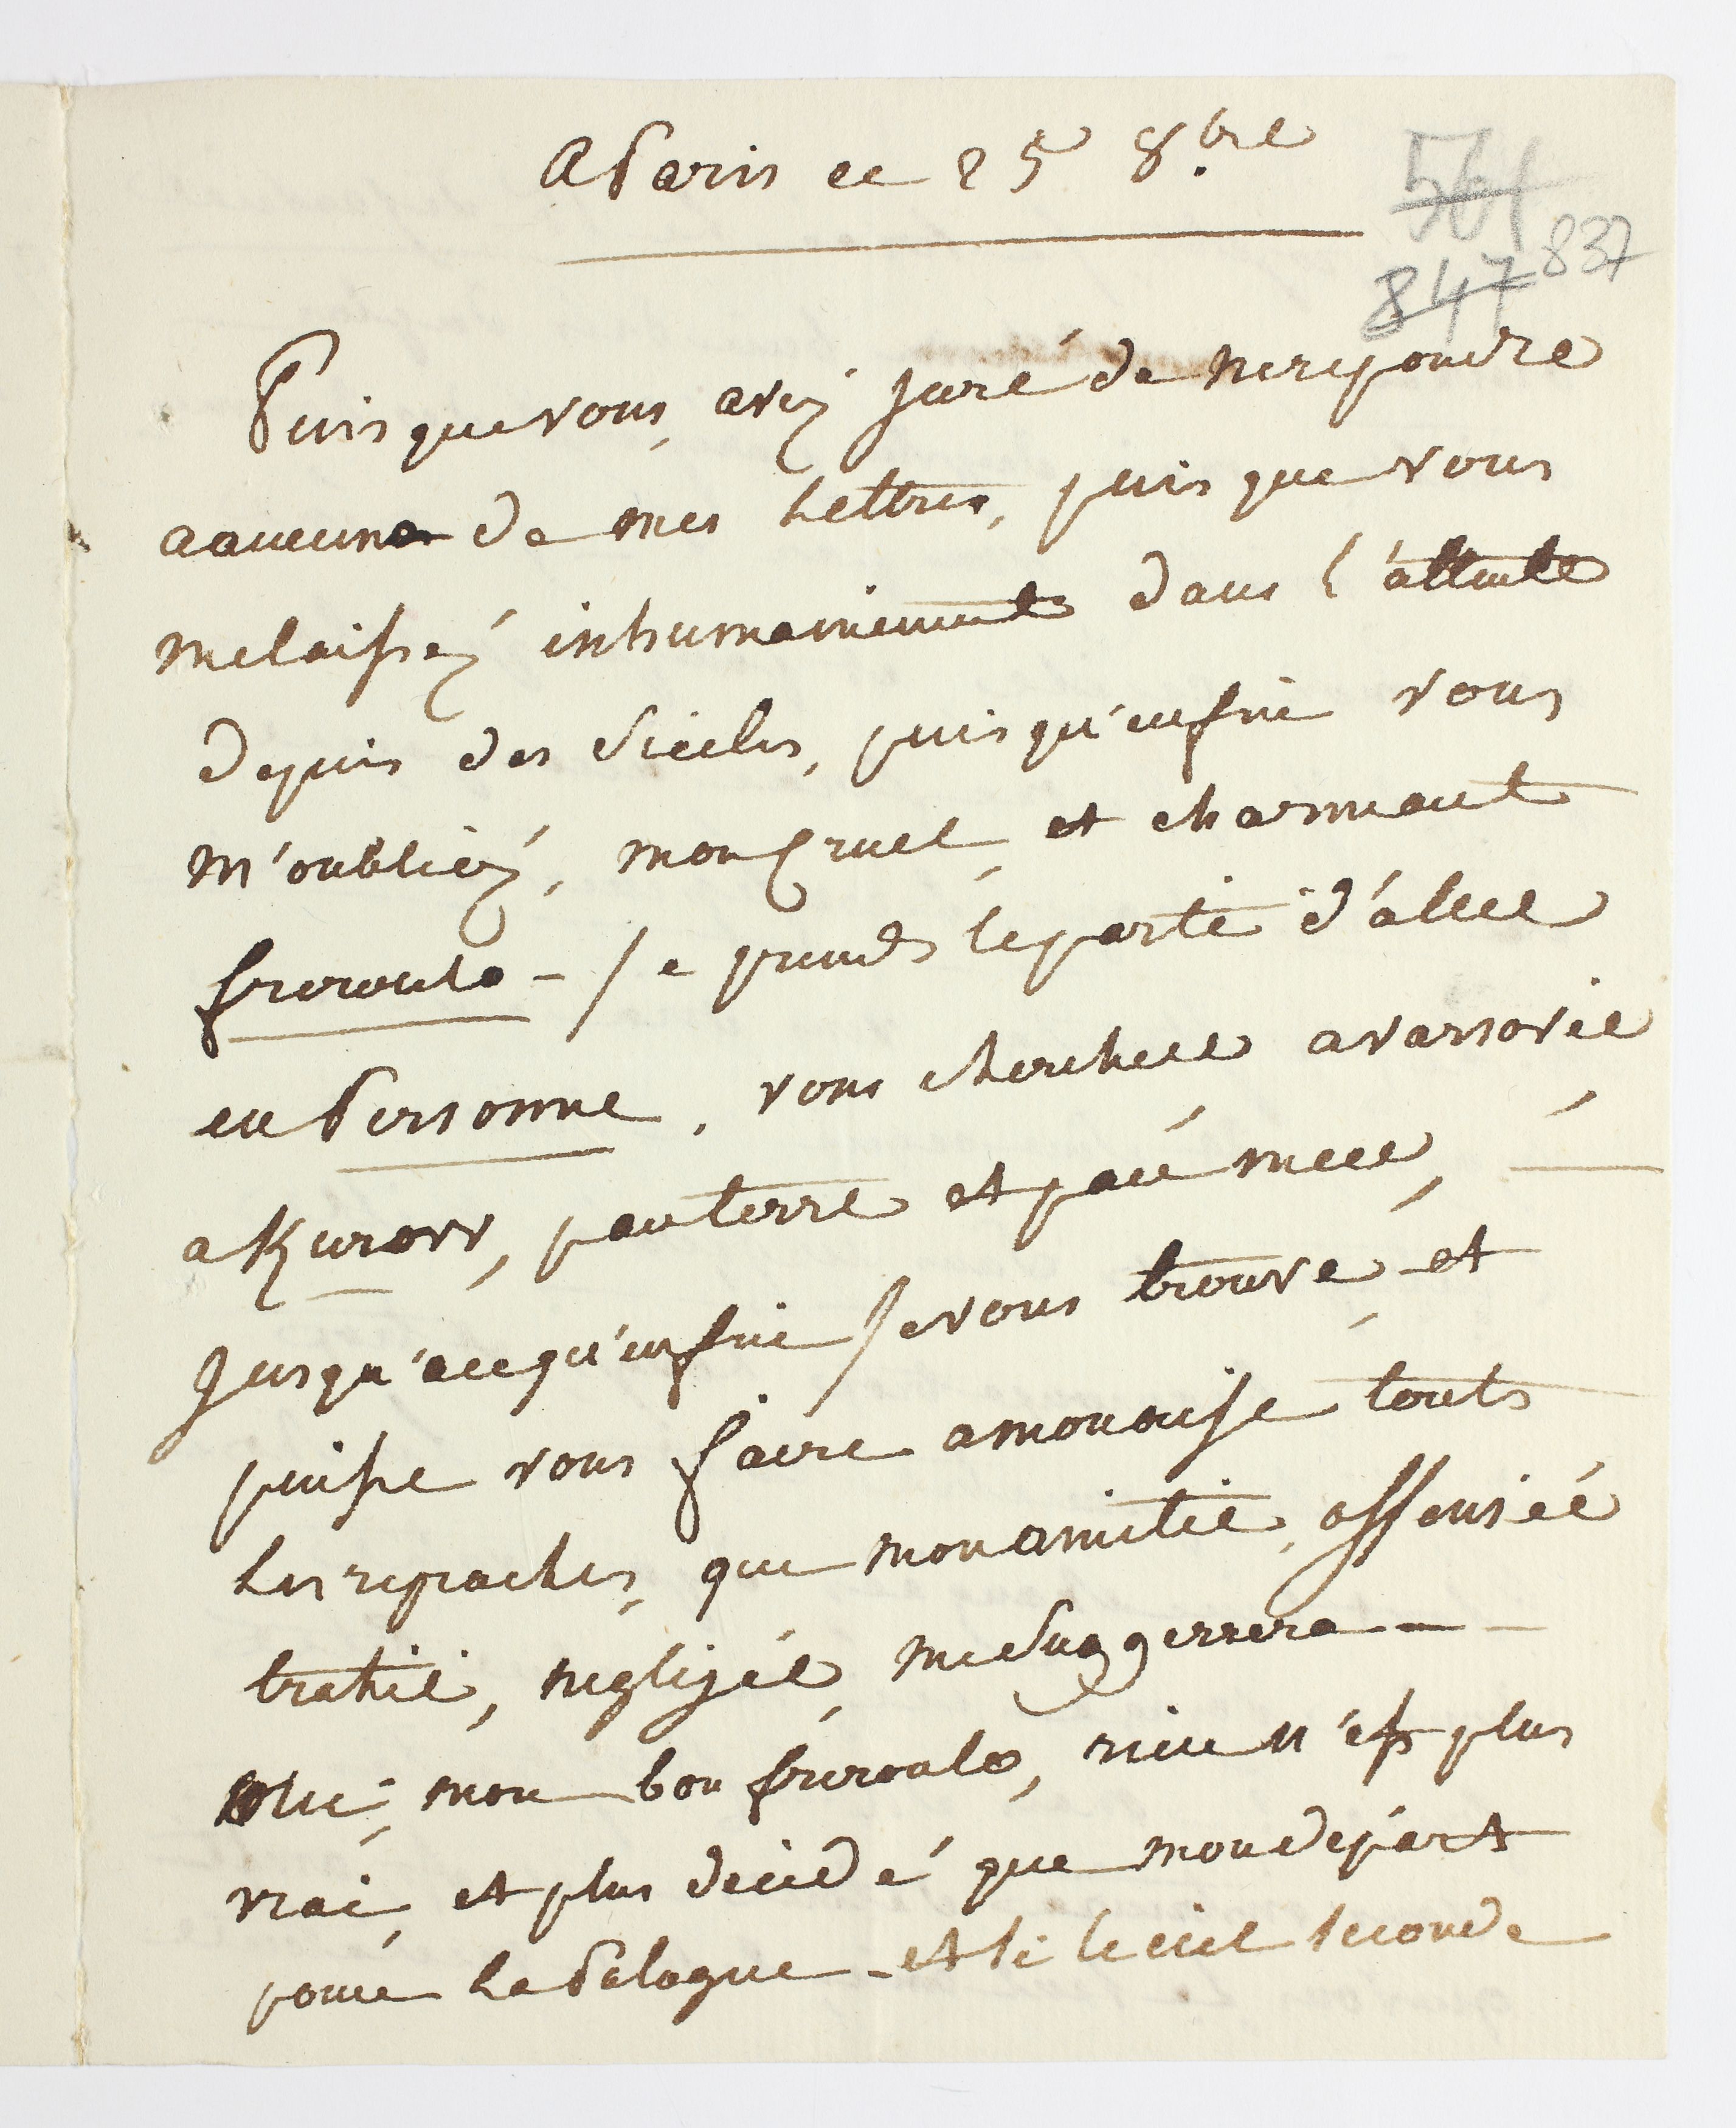 A Paris ce 25 8.bre
561
847 837
Puis que vous, avéz juré de ne repondre
a aucune de mes Lettres, puis que vous
me laissez inhumainement dans l'attente
depuis des Siecles, puis qu'enfin vous
m'oubliéz, mon Cruel, et charmant
– Je prends le parti d'aller
en Personne, vous chercher a varsovie,
a Kurow, par terre et par mer, —
Jusqu'a ce qu'enfin Je vous trouve, et
puisse vous faire a mon aise touts
Les reproches, que mon amitié, offensée
trahie, negligée, me Suggerrera — –
Oui, mon bon, rien n'est plus
vrai, et plus decidé que mon depart
pour La Pologne – et si le ciel seconde